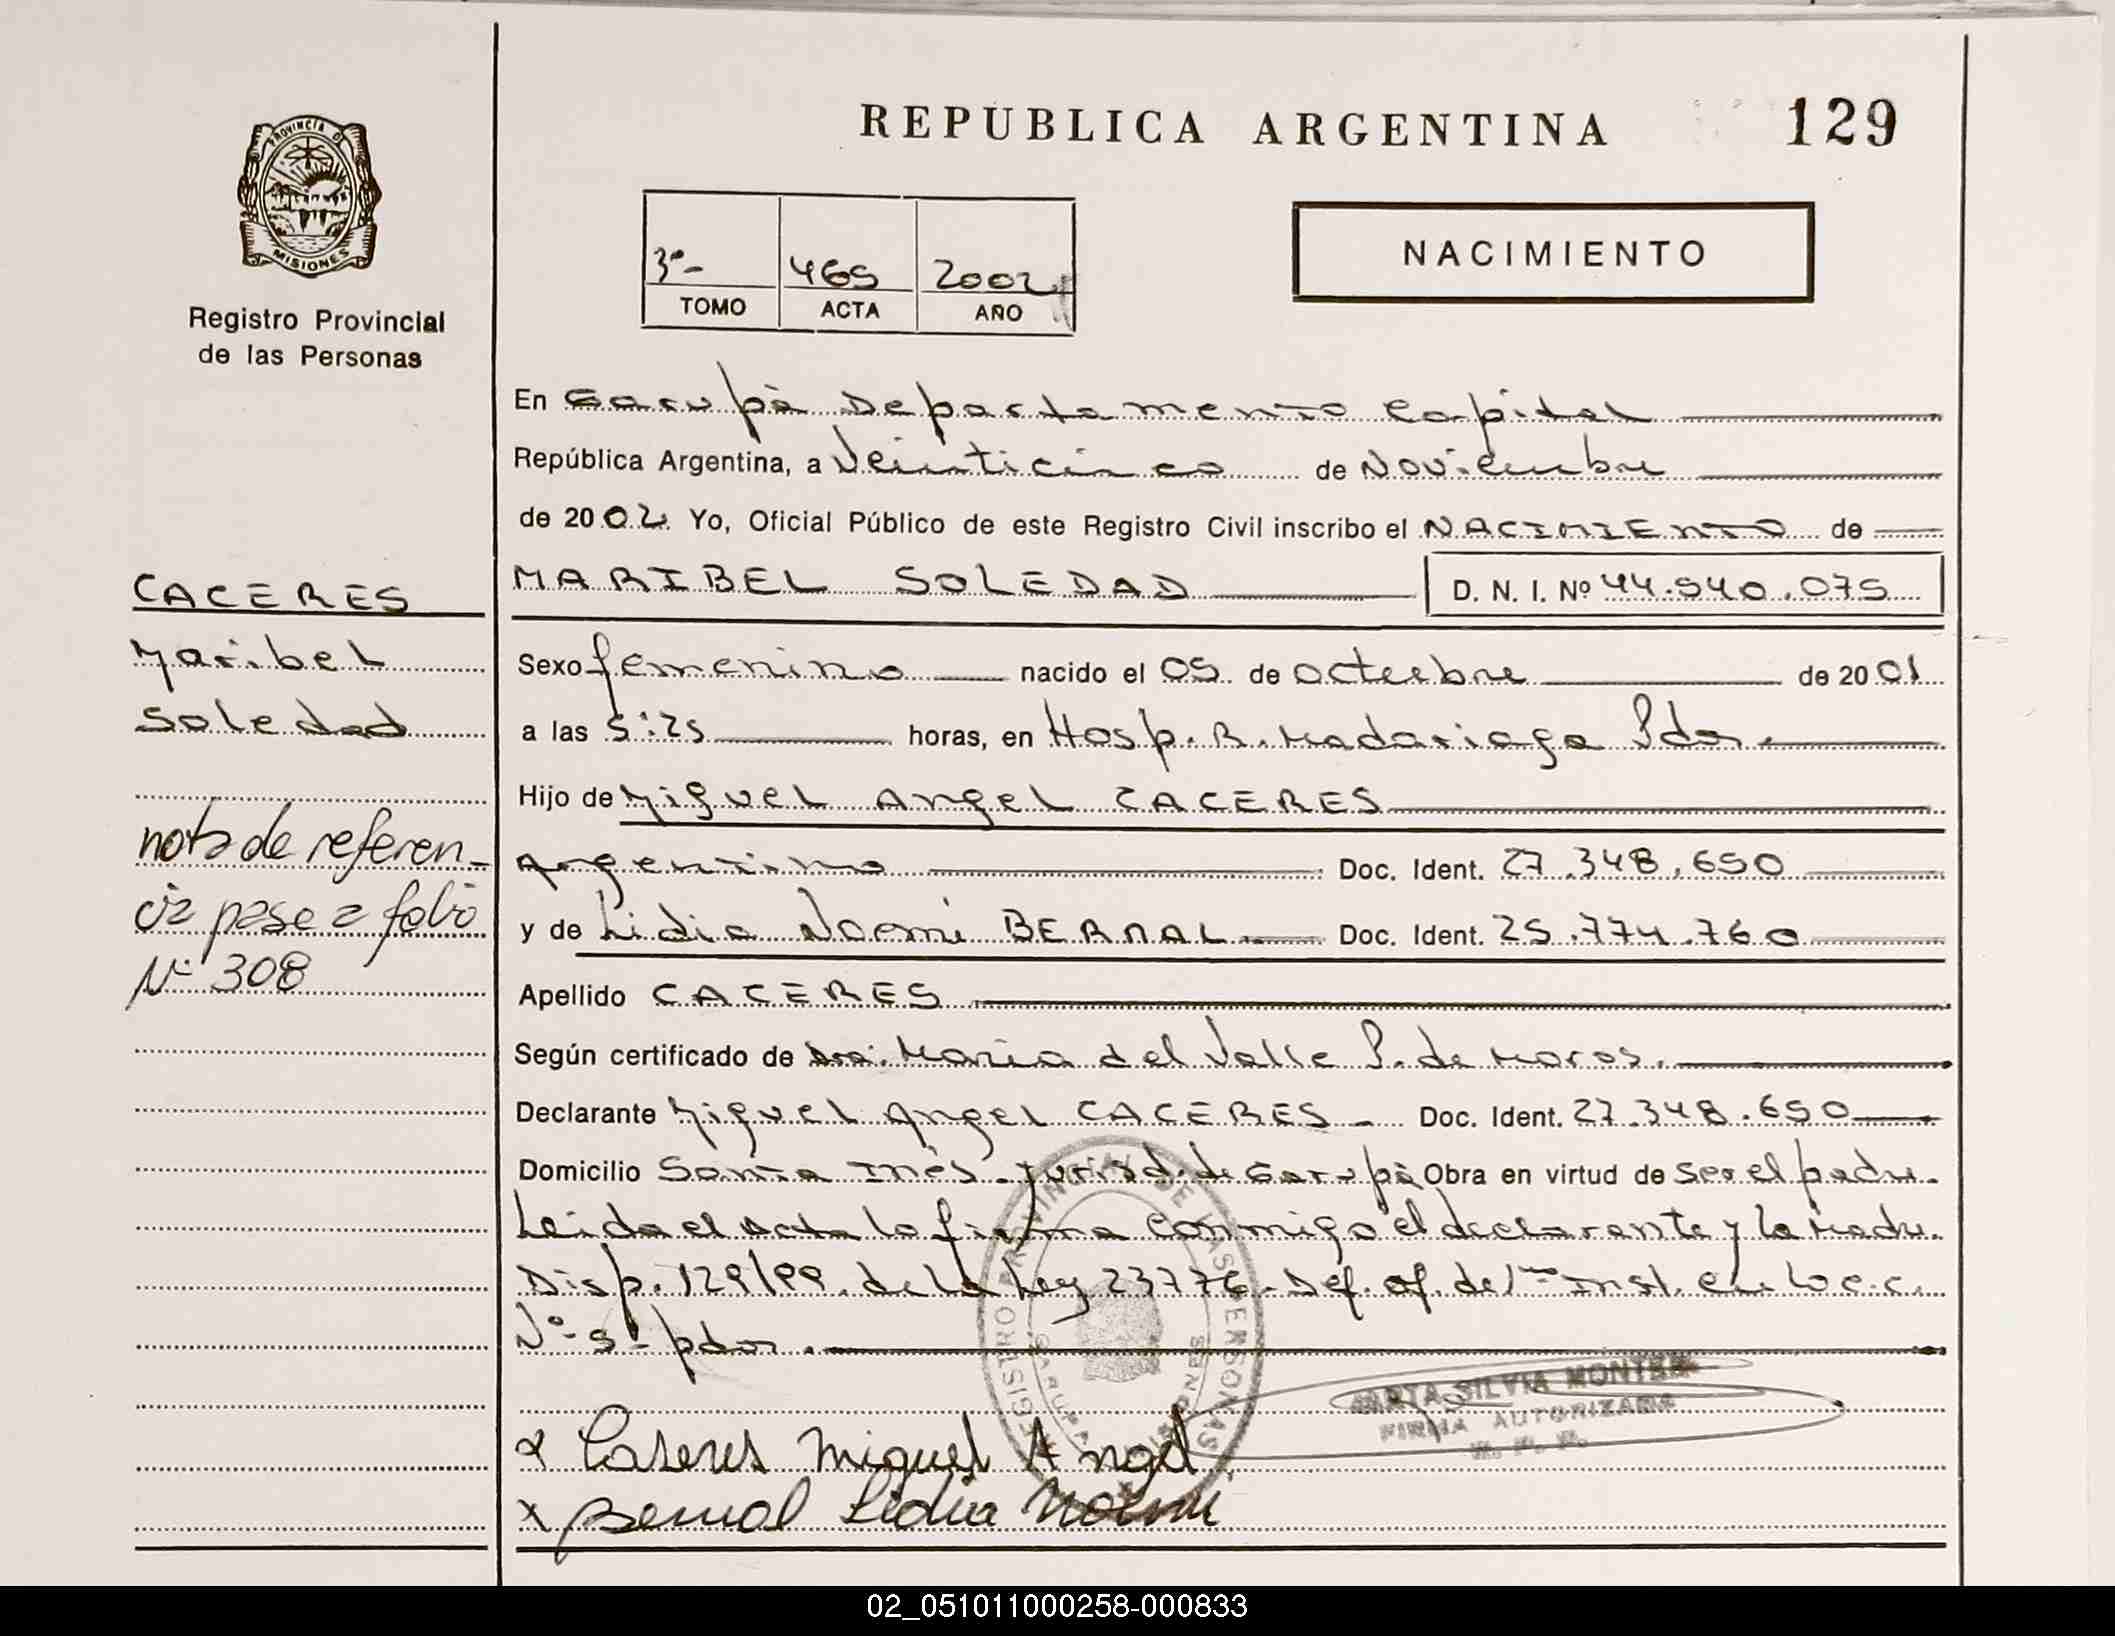 REPUBLICA ARGENTINA 129
PROVINCIA DE MISIONES
Registro Provincial
de las Personas
3º- 465 2002
TOMO ACTA AÑO
NACIMIENTO
En Garupà Departamento Capital
República Argentina, a Veinticinco de Noviembre
de 2002 Yo, Oficial Público de este Registro Civil inscribo el NACIMIENTO de
MARIBEL SOLEDAD D. N. I. Nº 44.540.075
Sexo femenino nacido el 05 de octubre de 2001
a las 5:25 horas, en Hosp. R. Madariaga Pdas.
Hijo de Miguel Angel CACERES
Argentino Doc. Ident. 27.348.650
y de Lidia Noemi BERNAL Doc. Ident. 25.774.760
Apellido CACERES
Según certificado de Dra. Maria del Valle P. de Moros.
Declarante Miguel Angel CACERES Doc. Ident. 27.348.650
Domicilio Santa Inés - Jurisd. de Garupà Obra en virtud de ser el padre.
Leida el acta lo firma conmigo el declarante y la Madre.
Disp. 129/99 de la Ley 23776 - Def. of. de 1ra Inst. en lo c.c.
Nº 5 - pdas.
CACERES
Maribel
Soledad
nota de referen-
cia pase a folio
Nº 308
REGISTRO PROVINCIAL DE LAS PERSONAS
GARUPA MISIONES
MARTA SILVIA
FIRMA AUTORIZADA
R. P. P.
x Caseres Miguel Angel
x Bernal Lidia Noemi
02_051011000258-000833